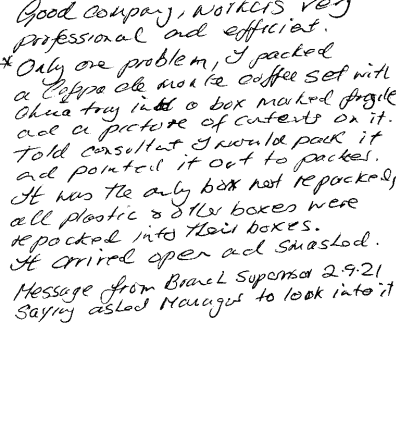 Good company, workers very
professional and efficient.
* Only one problem, I packed
a Cappo de monte coffee set with
China tray into a box marked fragile
and a picture of contents on it.
Told consultant I would pack it
and pointed it out to packer.
It was the only box not repacked,
all plastic & other boxes were
repacked into their boxes.
It arrived open and smashed.
Message from Branch Supervisor 2.9.21
Saying asked Manager to look into it